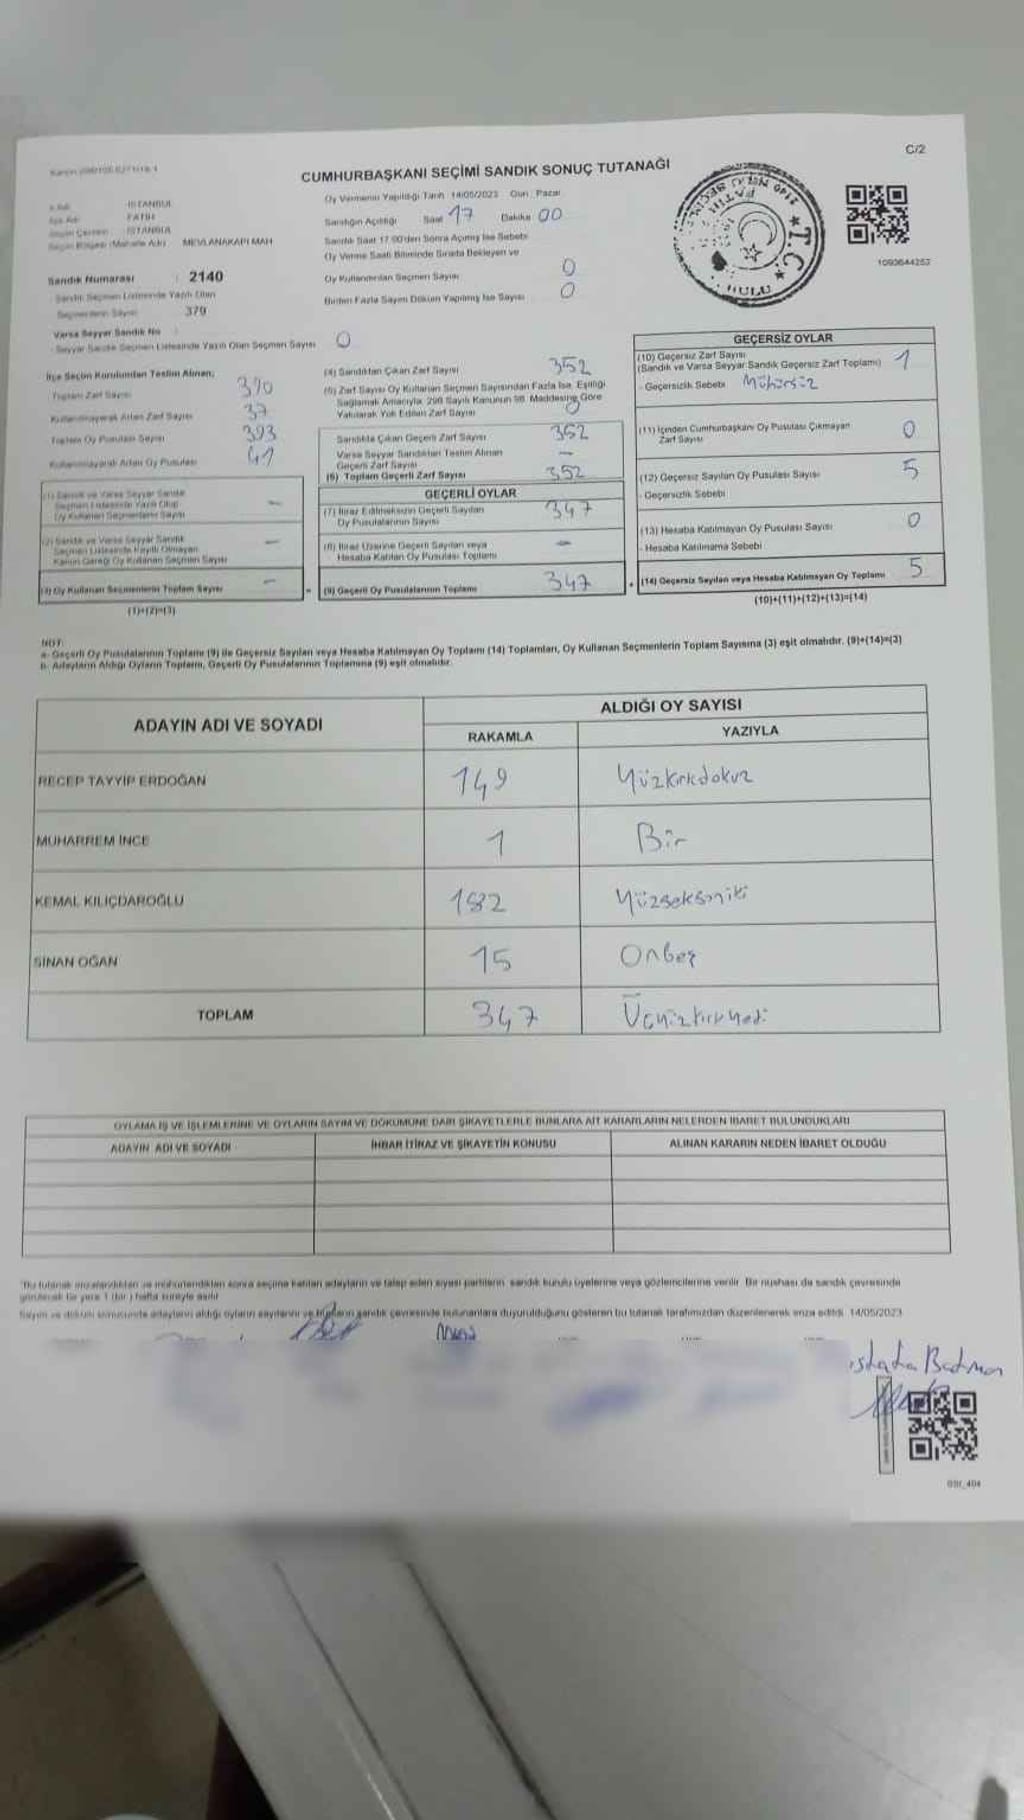 C/2
CUMHURBAŞKANI SEÇİMİ SANDIK SONUÇ TUTANAĞI
İSTANBUL
FATİH
İSTANBUL
MEVLANAKAPI MAH
Sandık Numarası : 2140
Sandık Seçmen Listesinde Yazılı Olan
Seçmenlerin Sayısı 379
Varsa Seyyar Sandık No :
Seyyar Sandık Seçmen Listesinde Yazılı Olan Seçmen Sayısı 0
Oy Vermenin Yapıldığı Tarih 14/05/2023 Gün Pazar
Sandığın Açıldığı Saat 17 Dakika 00
Sandık Saat 17.00'den Sonra Açılmış İse Sebebi
Oy Verme Saati Bitiminde Sırada Bekleyen ve
Oy Kullandırılan Seçmen Sayısı 0
Birden Fazla Sayım Döküm Yapılmış İse Sayısı 0
T.C.
1093644252
İlçe Seçim Kurulundan Teslim Alınan;
Toplam Zarf Sayısı
Kullanılmayarak Artan Zarf Sayısı 37
Toplam Oy Pusulası Sayısı 393
Kullanılmayarak Artan Oy Pusulası 41
(1) Sandık ve Varsa Seyyar Sandık
Seçmen Listesinde Yazılı Olup
Oy Kullanan Seçmenlerin Sayısı -
(2) Sandık ve Varsa Seyyar Sandık
Seçmen Listesinde Kayıtlı Olmayan
Kanun Gereği Oy Kullanan Seçmen Sayısı -
(3) Oy Kullanan Seçmenlerin Toplam Sayısı -
(1)+(2)=(3)
(4) Sandıktan Çıkan Zarf Sayısı 352
(5) Zarf Sayısı Oy Kullanan Seçmen Sayısından Fazla İse, Eşitliği
Sağlamak Amacıyla, 298 Sayılı Kanunun 98. Maddesine Göre
Yakılarak Yok Edilen Zarf Sayısı 0
Sandıkta Çıkan Geçerli Zarf Sayısı 352
Varsa Seyyar Sandıktan Teslim Alınan
Geçerli Zarf Sayısı -
(6) Toplam Geçerli Zarf Sayısı 352
GEÇERLİ OYLAR
(7) İtiraz Edilmeksizin Geçerli Sayılan
Oy Pusulalarının Sayısı 347
(8) İtiraz Üzerine Geçerli Sayılan veya
Hesaba Katılan Oy Pusulası Toplamı -
(9) Geçerli Oy Pusulalarının Toplamı 347
GEÇERSİZ OYLAR
(10) Geçersiz Zarf Sayısı
(Sandık ve Varsa Seyyar Sandık Geçersiz Zarf Toplamı) 1
- Geçersizlik Sebebi Mühürsüz
(11) İçinden Cumhurbaşkanı Oy Pusulası Çıkmayan
Zarf Sayısı 0
(12) Geçersiz Sayılan Oy Pusulası Sayısı 5
- Geçersizlik Sebebi
(13) Hesaba Katılmayan Oy Pusulası Sayısı 0
- Hesaba Katılmama Sebebi
(14) Geçersiz Sayılan veya Hesaba Katılmayan Oy Toplamı 5
(10)+(11)+(12)+(13)=(14)
NOT:
a- Geçerli Oy Pusulalarının Toplamı (9) ile Geçersiz Sayılan veya Hesaba Katılmayan Oy Toplamı (14) Toplamları, Oy Kullanan Seçmenlerin Toplam Sayısına (3) eşit olmalıdır. (9)+(14)=(3)
b- Adayların Aldığı Oyların Toplamı, Geçerli Oy Pusulalarının Toplamına (9) eşit olmalıdır.
ADAYIN ADI VE SOYADI ALDIĞI OY SAYISI
RAKAMLA YAZIYLA
RECEP TAYYİP ERDOĞAN 149 Yüzkırkdokuz
MUHARREM İNCE 1 Bir
KEMAL KILIÇDAROĞLU 182 Yüzseksəniki
SİNAN OĞAN 15 Onbeş
TOPLAM 347 Üçyüzkırkyedi
OYLAMA İŞ VE İŞLEMLERİNE VE OYLARIN SAYIM VE DÖKÜMÜNE DAİR ŞİKAYETLERLE BUNLARA AİT KARARLARIN NELERDEN İBARET BULUNDUKLARI
ADAYIN ADI VE SOYADI İHBAR İTİRAZ VE ŞİKAYETİN KONUSU ALINAN KARARIN NEDEN İBARET OLDUĞU
Bu tutanak imzalandıktan ve mühürlendikten sonra seçime katılan adayların ve talep eden siyasi partilerin sandık kurulu üyelerine veya gözlemcilerine verilir. Bir nüshası da sandık çevresinde
görülecek bir yere 1 (bir) hafta süreyle asılır.
Sayım ve döküm sonucunda adayların aldığı oyların sayılarını ve bunların sandık çevresinde bulunanlara duyurulduğunu gösteren bu tutanak tarafımızdan düzenlenerek imza edildi. 14/05/2023
Batman